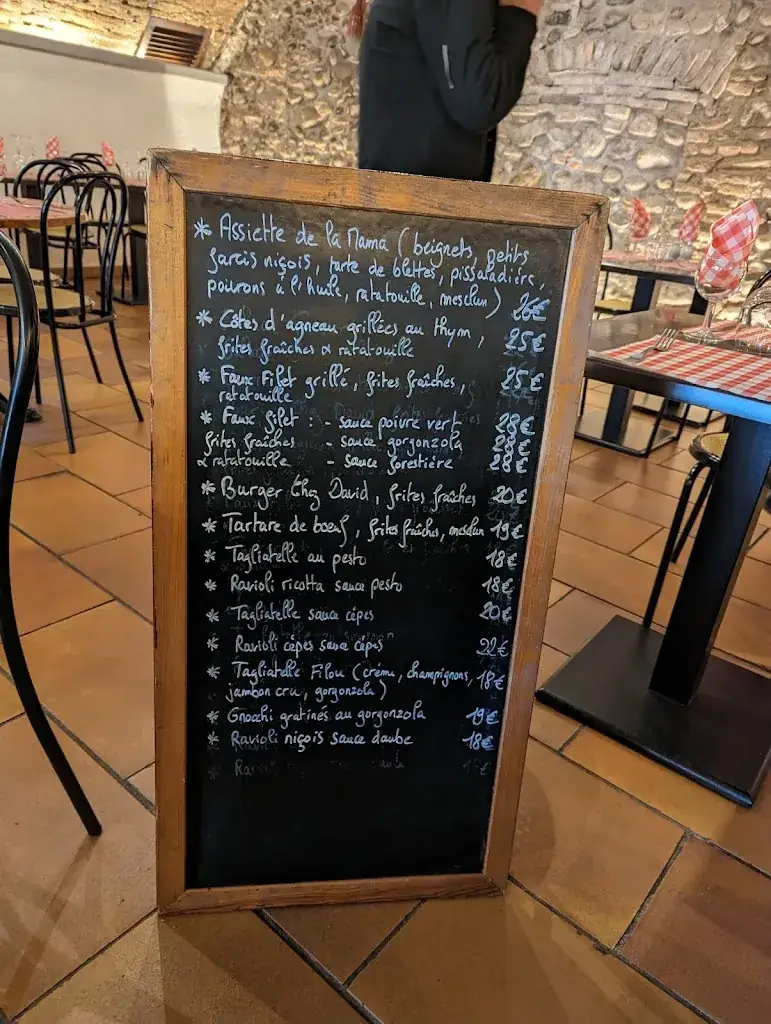 * Assiette de la Mama ( beignets, petits
farcis niçois, tarte de blettes, pissaladière,
poivrons à l'huile, ratatouille, mesclun ) 26€
* Côtes d'agneau grillées au thym, 25€
frites fraîches & ratatouille
* Faux Filet grillé, frites fraîches, 25€
ratatouille
* Faux filet : - sauce poivre vert 28€
frites fraîches - sauce gorgonzola 28€
& ratatouille - sauce forestière 28€
* Burger Chez David, frites fraîches 20€
* Tartare de bœuf, frites fraîches, mesclun 19€
* Tagliatelle au pesto 18€
* Ravioli ricotta sauce pesto 18€
* Tagliatelle sauce cèpes 20€
* Ravioli cèpes sauce cèpes 22€
* Tagliatelle Filou (crème, champignons, 18€
jambon cru, gorgonzola)
* Gnocchi gratinés au gorgonzola 19€
* Ravioli niçois sauce daube 18€